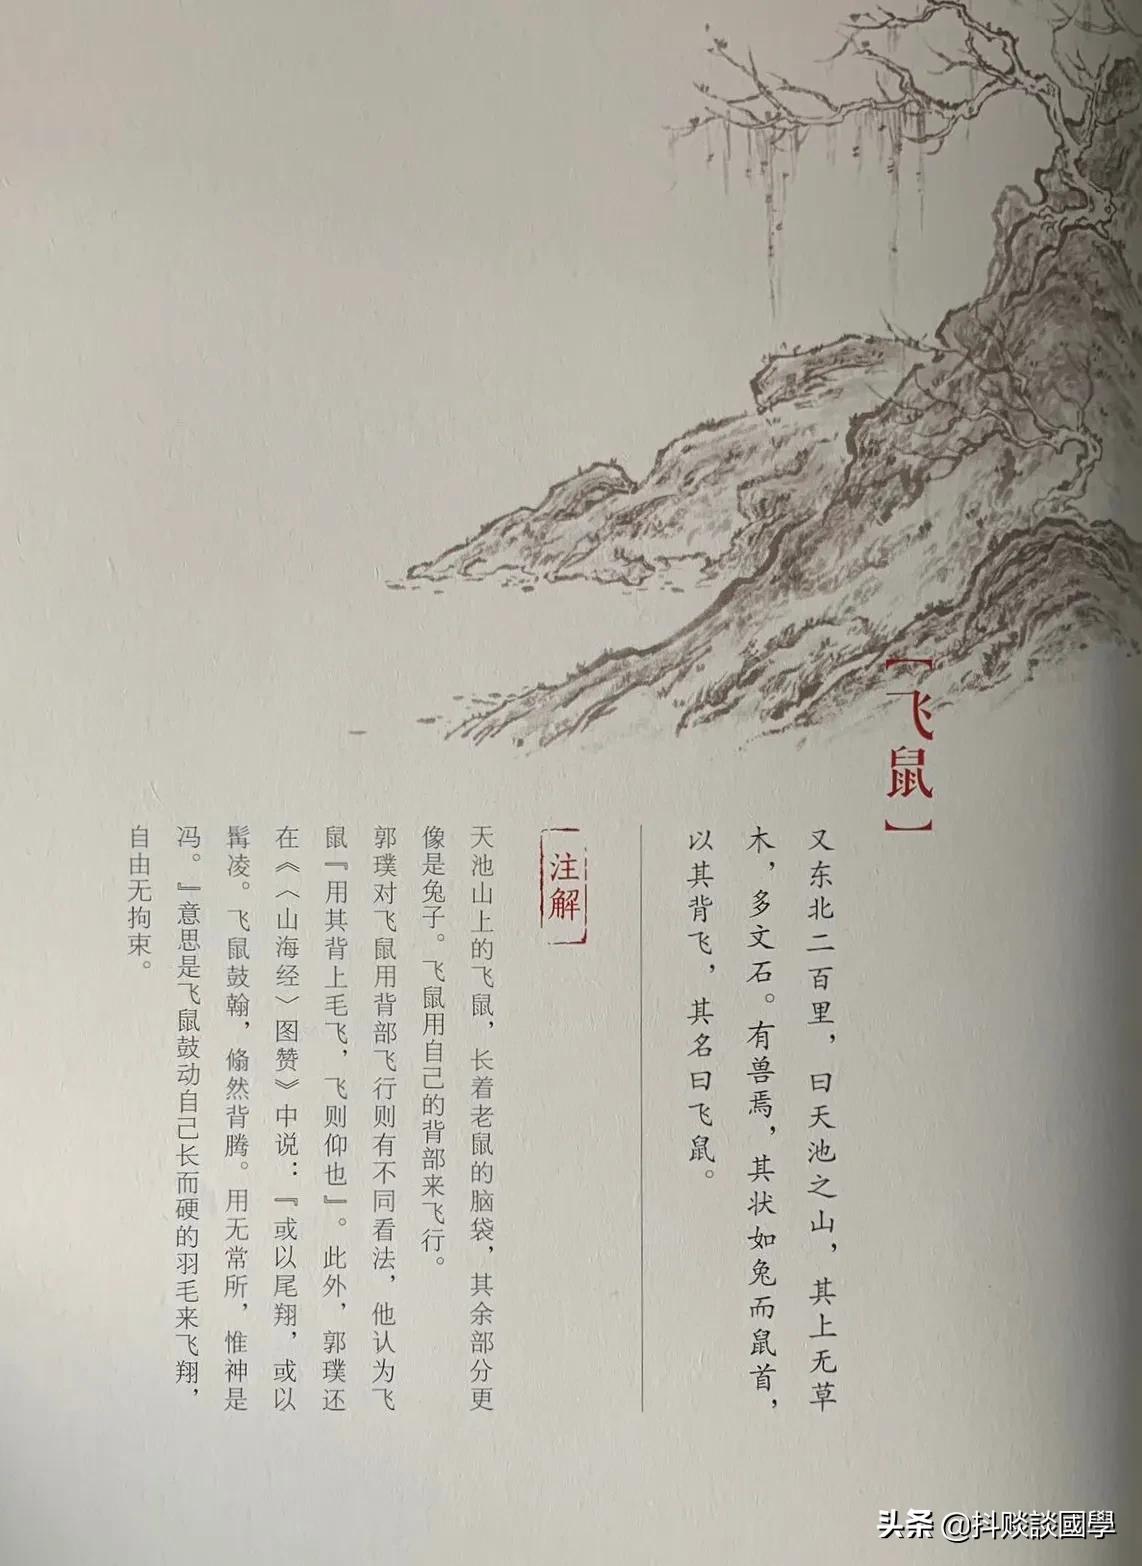 【飞鼠】
又东北二百里，曰天池之山，其上无草
木，多文石。有兽焉，其状如兔而鼠首，
以其背飞，其名曰飞鼠。
注解
天池山上的飞鼠，长着老鼠的脑袋，其余部分更
像是兔子。飞鼠用自己的背部来飞行。
郭璞对飞鼠用背部飞行则有不同看法，他认为飞
鼠『用其背上毛飞，飞则仰也』。此外，郭璞还
在《〈山海经〉图赞》中说：『或以尾翔，或以
髯凌。飞鼠鼓翰，翛然背腾。用无常所，惟神是
冯。』意思是飞鼠鼓动自己长而硬的羽毛来飞翔，
自由无拘束。
头条 @抖赕談國學